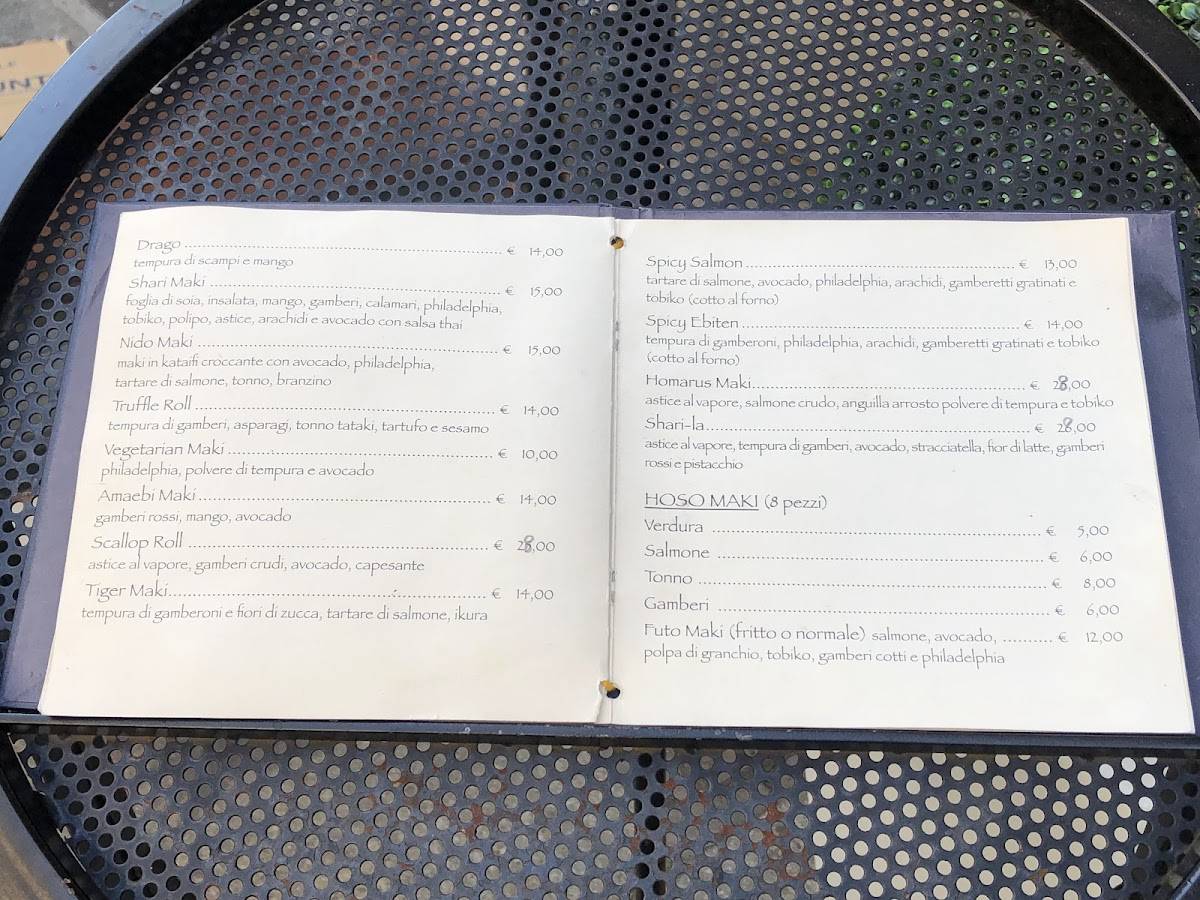 Drago ........ € 14,00
tempura di scampi e mango
Shari Maki ........ € 15,00
foglia di soia, insalata, mango, gamberi, calamari, philadelphia,
tobiko, polipo, astice, arachidi e avocado con salsa thai
Nido Maki ........ € 15,00
maki in kataifi croccante con avocado, philadelphia,
tartare di salmone, tonno, branzino
Truffle Roll ........ € 14,00
tempura di gamberi, asparagi, tonno tataki, tartufo e sesamo
Vegetarian Maki ........ € 10,00
philadelphia, polvere di tempura e avocado
Amaebi Maki ........ € 14,00
gamberi rossi, mango, avocado
Scallop Roll ........ € 28,00
astice al vapore, gamberi crudi, avocado, capesante
Tiger Maki ........ € 14,00
tempura di gamberoni e fiori di zucca, tartare di salmone, ikura
Spicy Salmon ........ € 13,00
tartare di salmone, avocado, philadelphia, arachidi, gamberetti gratinati e
tobiko (cotto al forno)
Spicy Ebiten ........ € 14,00
tempura di gamberoni, philadelphia, arachidi, gamberetti gratinati e tobiko
(cotto al forno)
Homarus Maki ........ € 28,00
astice al vapore, salmone crudo, anguilla arrosto polvere di tempura e tobiko
Shari-la ........ € 28,00
astice al vapore, tempura di gamberi, avocado, stracciatella, fior di latte, gamberi
rossi e pistacchio
HOSO MAKI (8 pezzi)
Verdura ........ € 5,00
Salmone ........ € 6,00
Tonno ........ € 8,00
Gamberi ........ € 6,00
Futo Maki (fritto o normale) salmone, avocado, .......... € 12,00
polpa di granchio, tobiko, gamberi cotti e philadelphia